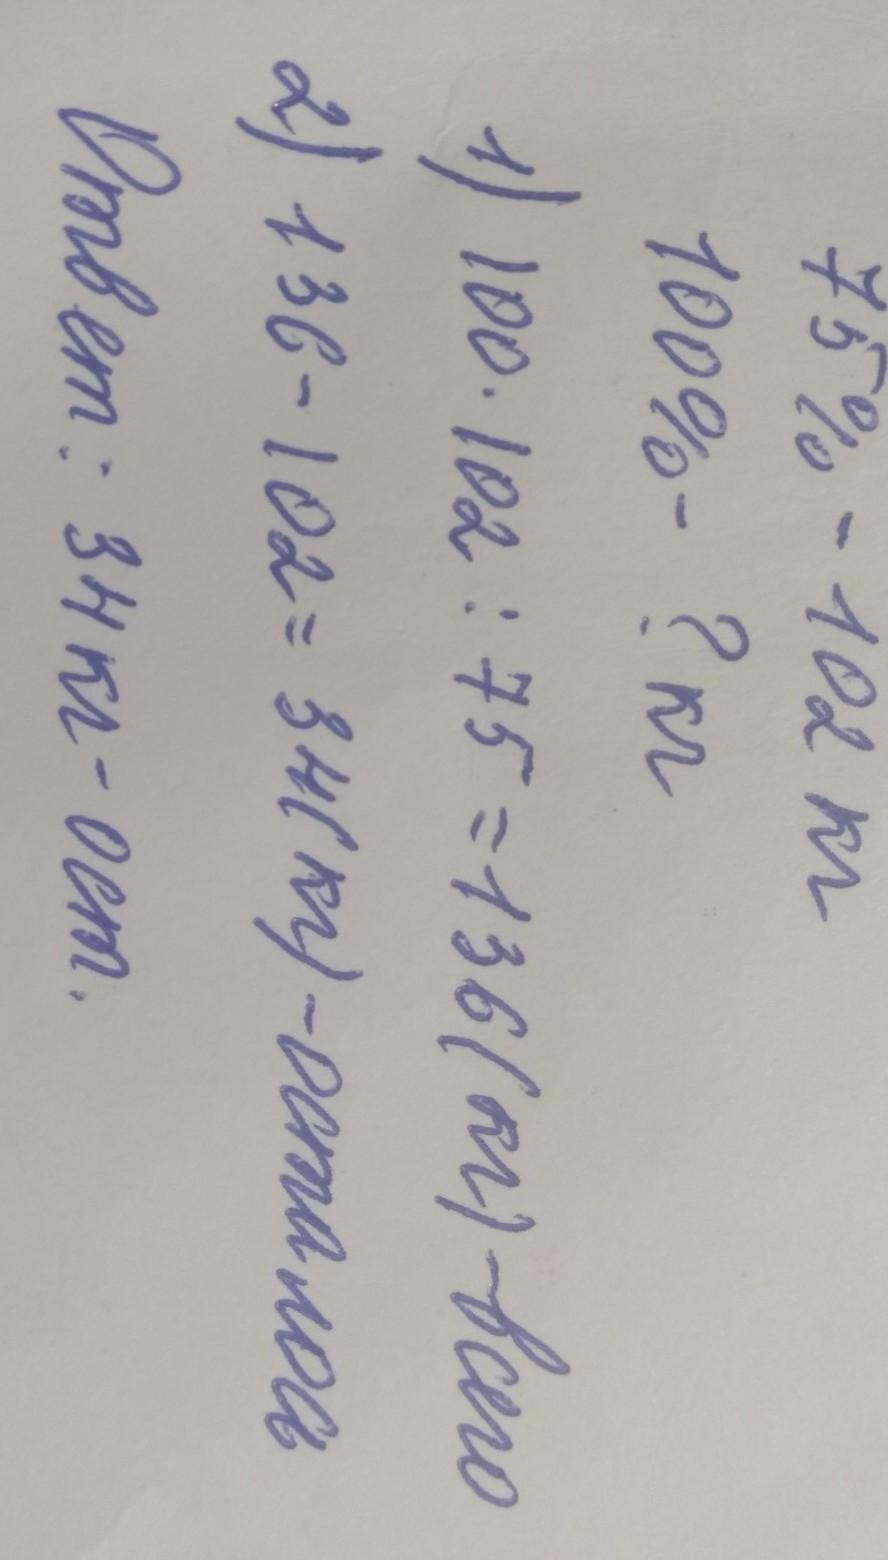 75% - 102 кг
100% - ? кг
1) 100 · 102 : 75 = 136 (кг) - всего
2) 136 - 102 = 34 (кг) - осталось
Ответ: 34 кг - ост.